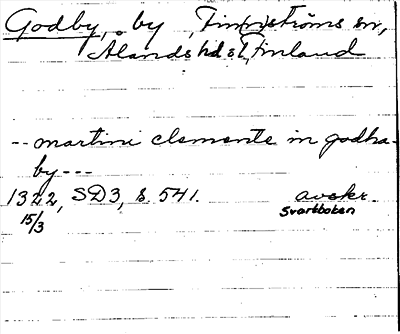 Godby, by, Finnströms sn,
Ålands hd o l, Finland
-- martini clemente in godha-
by ---
1322, SD3, s. 541. avskr.
15/3 Svartboken